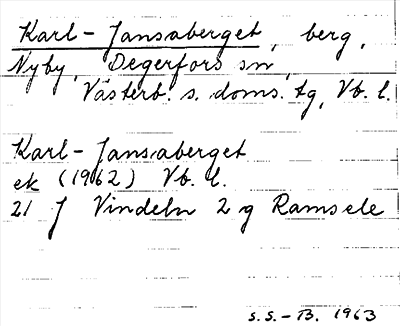 Karl-Jansaberget, berg,
Nyby, Degerfors sn,
Västerb. s. doms. tg, Vb. l.
Karl-Jansaberget
ek (1962) Vb. l.
21 J Vindeln 2 g Ramsele
S.S.-B. 1963